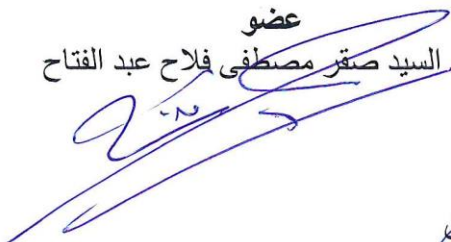 عضو
السيد صقر مصطفى فلاح عبد الفتاح